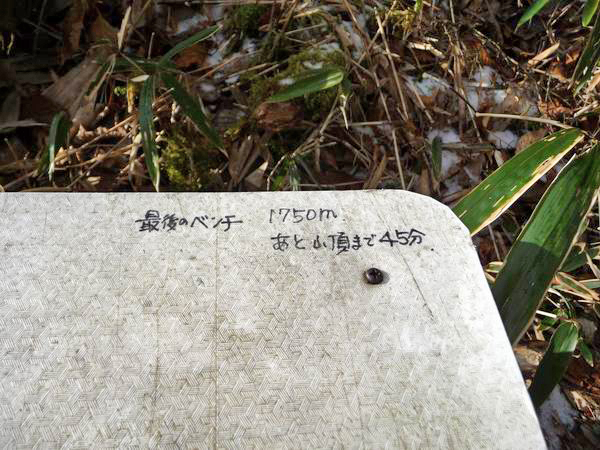 最後のベンチ 1750m
あと山頂まで45分.